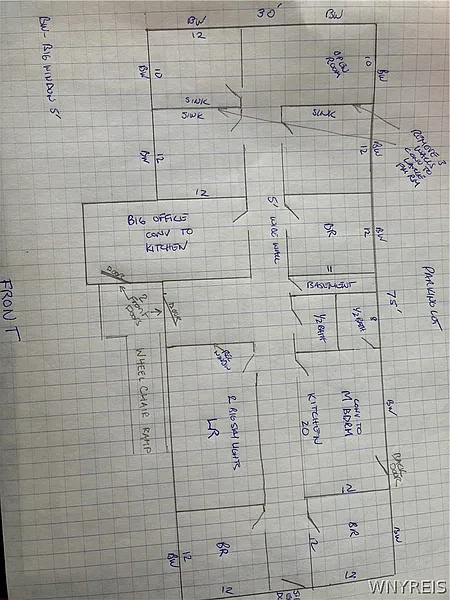 BW
30'
BW
12
BW
10
OPEN
ROOM
10
BW
SINK
SINK
SINK
REMOVE 3
WALLS
CONV TO
LARGE
FAM RM
BW
12
12
BW
12
BIG OFFICE
CONV TO
KITCHEN
5' WIDE HALL
BR
12
BW
BASEMENT
DOOR
2
FRONT
DOORS
DOOR
1/2 BATH
1/2 BATH
8
75'
PARKING LOT
WHEEL CHAIR RAMP
BIG
WINDOW
2 BIG SKY LIGHTS
LR
KITCHEN
20
CONV TO
M BDRM
BW
BACK
DOOR
12
BR
12
BW
12
12
BR
BW
12
BW- BIG WINDOW 5'
FRONT
WNYREIS